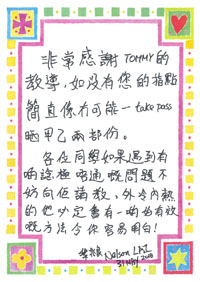 非常感謝TOMMY的
教導，如沒有您的指點
簡直係冇可能一take pass
晒甲乙兩部份。
各位同學如果遇到有
啲諗極唔通嘅問題不
妨向佢請教，外冷內熱
的他必定會有一啲好有效
嘅方法令你容易明白！
Nelson LAI
31 May 2008